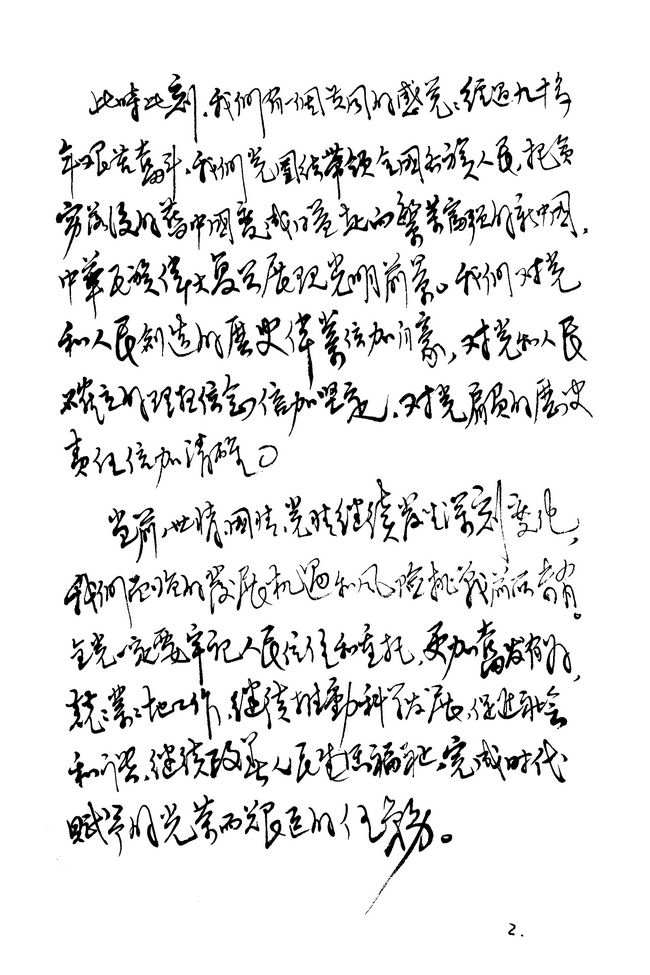 此時此刻,我们有一個共同的感觉:经过九十多
年艰苦奮斗,我们党團结带领全國各族人民,把貧
窮落後的舊中國变成日益走向繁荣富强的新中國,
中華民族偉大复兴展现光明前景。我们对党
和人民創造的歷史偉業倍加自豪,对党和人民
確立的理想信念倍加坚定,对党肩負的歷史
责任倍加清醒。
当前,世情、國情、党情继续發生深刻变化,
我们面临的發展机遇和風险挑戰前所未有。
全党一定要牢记人民信任和重托,更加奮发有为,
兢兢業業地工作,继续推動科学发展、促进社会
和谐,继续改善人民生活、增進人民福祉,完成时代
赋予的光荣而艰巨的任务。
2.